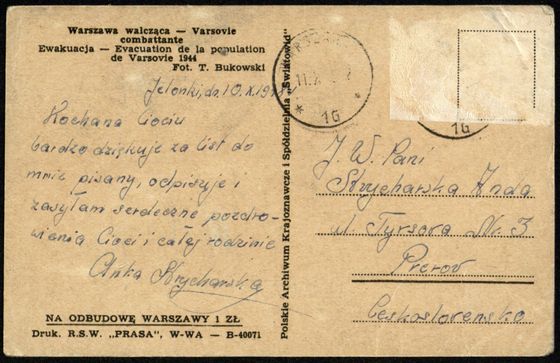 Warszawa walcząca — Varsovie
combattante
Ewakuacja — Evacuation de la population
de Varsovie 1944
Fot. T. Bukowski
Jelonki, dn. 10.X.19
Kochana Ciociu
bardzo dziękuję za list do
mnie pisany, odpisuję i
zasyłam serdeczne pozdro-
wienia Cioci i całej rodzinie
Anka Strycharska
NA ODBUDOWĘ WARSZAWY 1 ZŁ
Druk. R.S.W. „PRASA", W-WA — B-40071
Polskie Archiwum Krajoznawcze i Spółdzielnia „Światowid"
1G
1G
J. W. Pani
Strycharska Anda
ul. Tyrsova Nr. 3
Prerov
Československo